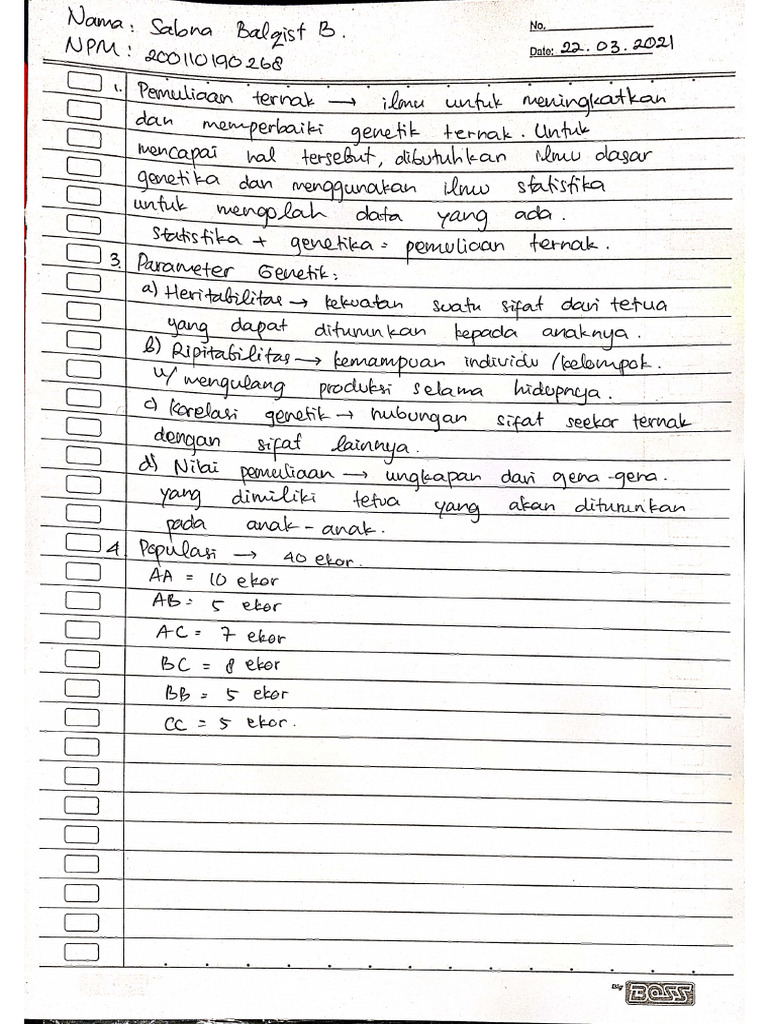 Nama : Sabna Balqist B.
NPM : 200110190268
No.
Date: 22.03.2021
1. Pemuliaan ternak → ilmu untuk meningkatkan
dan memperbaiki genetik ternak. Untuk
mencapai hal tersebut, dibutuhkan ilmu dasar
genetika dan menggunakan ilmu statistika
untuk mengolah data yang ada.
statistika + genetika = pemuliaan ternak.
3. Parameter Genetik :
a) Heritabilitas → kekuatan suatu sifat dari tetua
yang dapat diturunkan kepada anaknya.
b) Ripitabilitas → kemampuan individu /kelompok.
u/ mengulang produksi selama hidupnya.
c) Korelasi genetik → hubungan sifat seekor ternak
dengan sifat lainnya.
d) Nilai pemuliaan → ungkapan dari gena-gena.
yang dimiliki tetua yang akan diturunkan
pada anak-anak.
4. Populasi → 40 ekor.
AA = 10 ekor
AB = 5 ekor
AC = 7 ekor
BC = 8 ekor
BB = 5 ekor
CC = 5 ekor.
Big BOSS